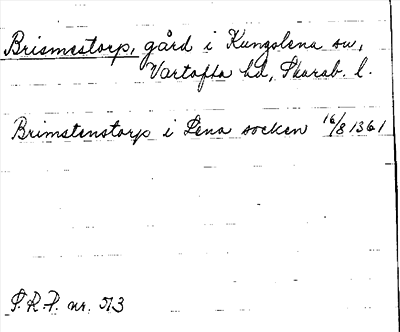 Brismestorp, gård i Kungslena sn,
Vartofta hd, Skarab. l.
Brimstenstorp i Lena socken 16/8 1361
S.R.P. nr. 513